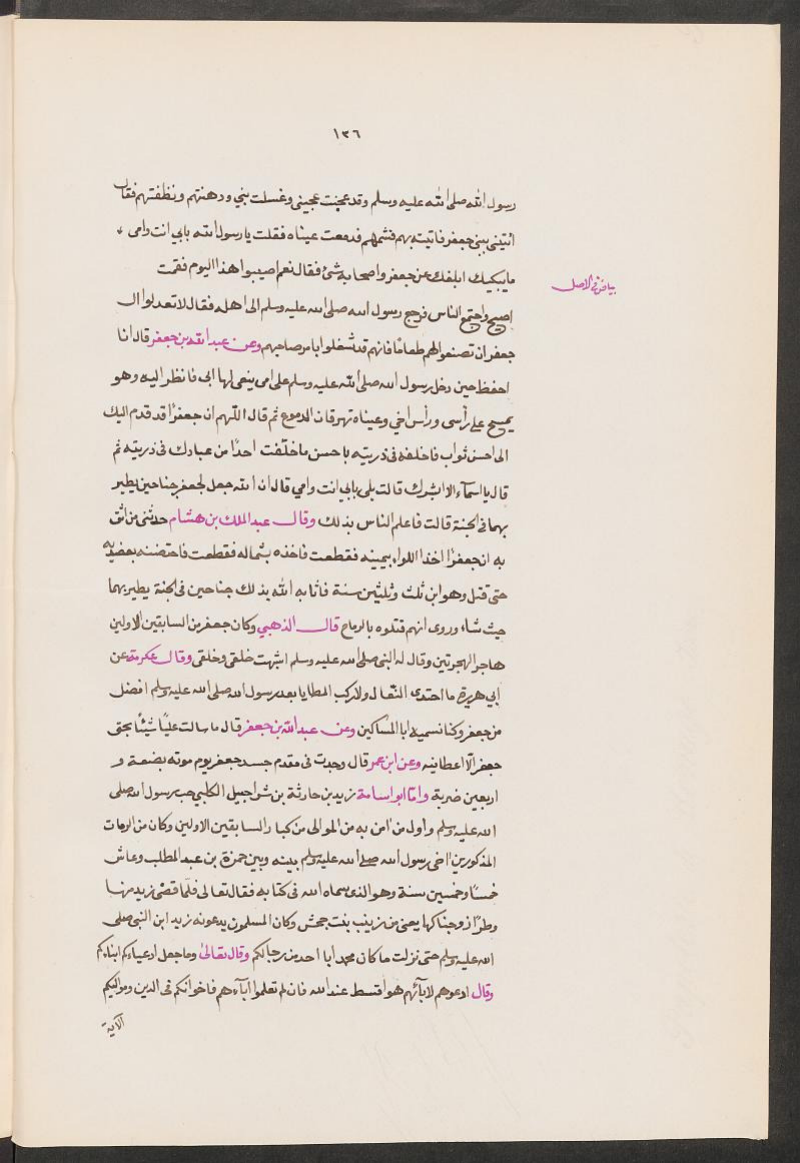 ١٣٦
رسول الله صلى الله عليه وسلم وقد عجنت عجينى وغسلت بني ودهنتهم ونظفتهم فقال
ائتينى ببنى جعفر فاتيته بهم فشمهم فدمعت عيناه فقلت يا رسول الله بابي انت وامى
ما يبكيك ابلغك عن جعفر واصحابه شئ فقال نعم اصيبوا هذا اليوم فقمت
بياض فى الاصل
اصيح واجتمع الناس فرجع رسول الله صلى الله عليه وسلم الى اهله فقال لا تعدلوا ال
جعفر ان تصنعوا لهم طعاما فانهم قد شغلوا بامر صاحبهم وعن عبد الله بن جعفر قال انا
احفظ حين دخل رسول الله صلى الله عليه وسلم على امى ينعى لها ابى فانظر اليه وهو
يمسح على رأسى ورأس اخي وعيناه تهرقان الدموع ثم قال اللهم ان جعفرًا قد قدم اليك
الى احسن ثواب فاخلفه فى ذريته باحسن ما خلفت احدًا من عبادك فى ذريته ثم
قال يا اسمآء الا ابشرك قالت بلى بابي انت وامي قال ان الله جعل لجعفر جناحين يطير
بهما فى الجنة قالت فاعلم الناس بذلك وقال عبد الملك بن هشام حدثنى من اثق
به ان جعفرًا اخذ اللواء بيمينه فقطعت فاخذه بشماله فقطعت فاحتضنه بعضديه
حتى قتل وهو ابن ثلث وثلثين سنة فاثابه الله بذلك جناحين فى الجنة يطير بهما
حيث شاء وروى انهم قتلوه بالرماح قال الذهبي وكان جعفر من السابقين الاولين
هاجر الهجرتين وقال له النبى صلى الله عليه وسلم اشبهت خلقى وخلقى وقال عكرمة عن
ابي هريرة ما احتذى النعال ولا ركب المطايا بعد رسول الله صلى الله عليه وسلم افضل
من جعفر وكنا نسميه ابا المساكين وعن عبد الله بن جعفر قال ما سالت عليًا شيئًا بحق
جعفر الّا اعطانيه وعن ابن عمر قال وجدت فى مقدم جسد جعفر يوم موته بضعة و
اربعين ضربة وامّا ابو اسامة زيد بن حارثة بن شراجيل الكلبي حب رسول الله صلى
الله عليه وسلم واول من آمن به من الموالى من كبار السابقين الاولين وكان من الرماة
المذكورين اخى رسول الله صلى الله عليه وسلم بينه وبين حمزة بن عبد المطلب وعاش
خمسًا وخمسين سنة وهو الذى سماه الله فى كتابه فقال تعالى فلمّا قضى زيد منها
وطرًا زوجناكها يعنى من زينب بنت جحش وكان المسلمون يدعونه زيد ابن النبى صلى
الله عليه وسلم حتى نزلت ما كان محمد ابا احد من رجالكم وقال تعالى وما جعل ادعياءكم ابناءكم
وقال ادعوهم لآبآئهم هو اقسط عند الله فان لم تعلموا ابآءهم فاخوانكم فى الدين ومواليكم
الآية